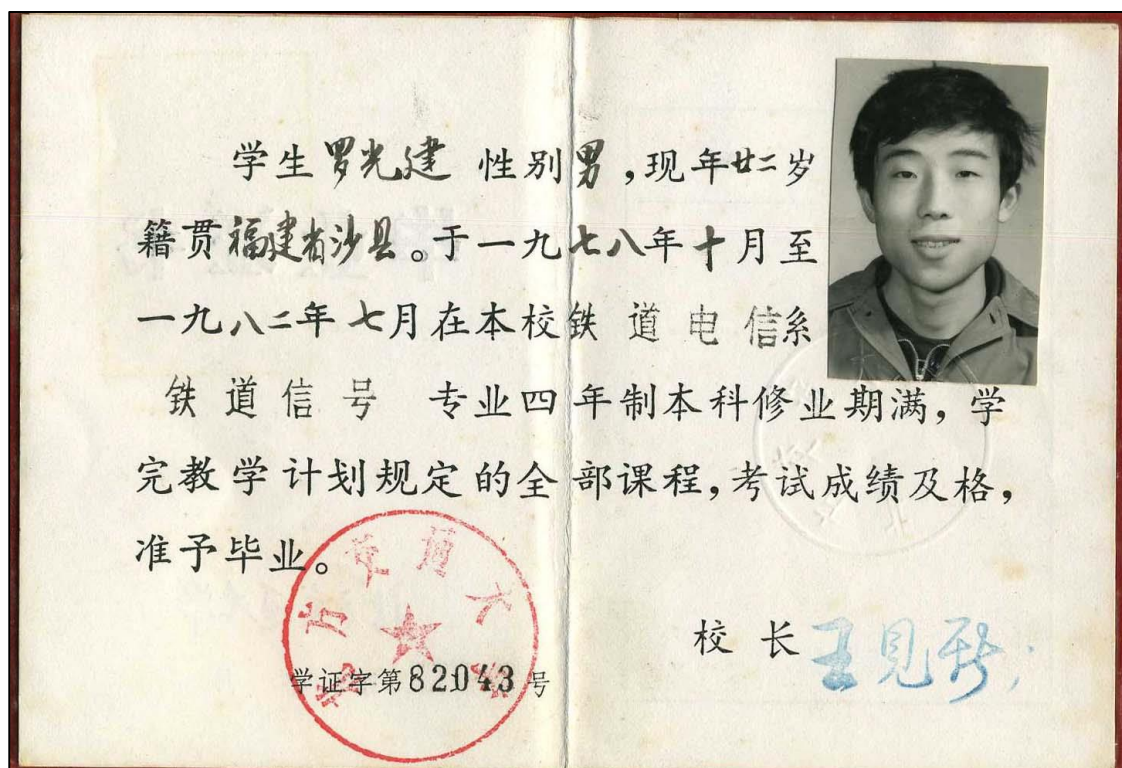 学生罗光建 性别男,现年廿二岁
籍贯福建省沙县。于一九七八年十月至
一九八二年七月在本校铁道电信系
铁道信号 专业四年制本科修业期满,学
完教学计划规定的全部课程,考试成绩及格,
准予毕业。
北方交通大学
校长王见新
学证字第82043号